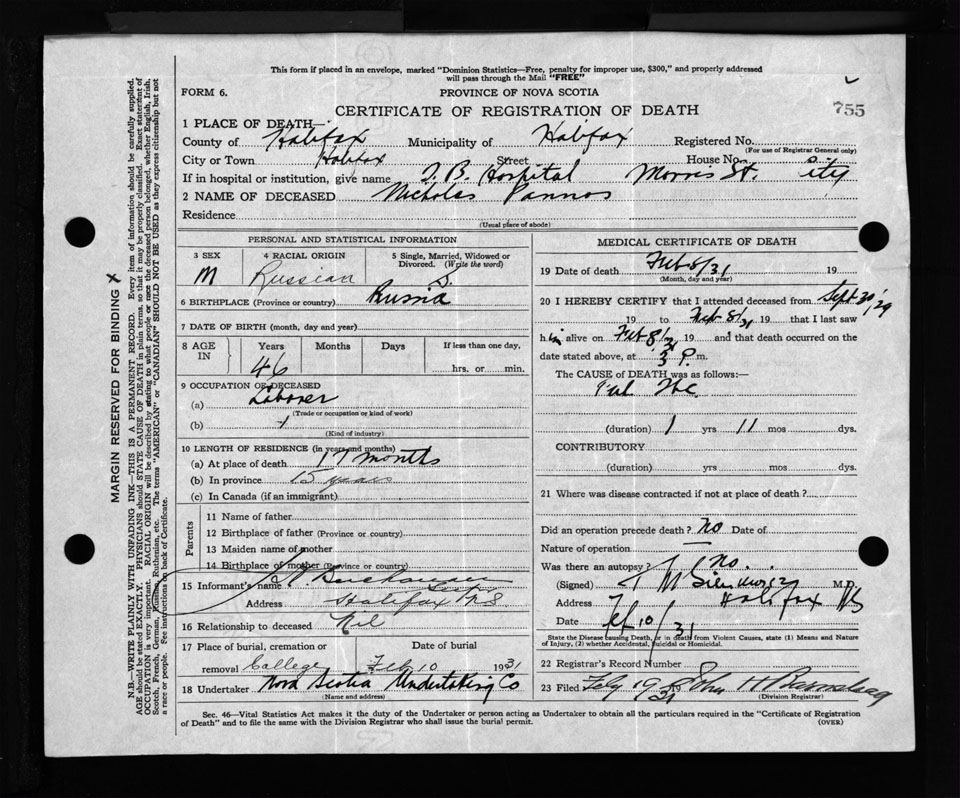 This form if placed in an envelope, marked "Dominion Statistics—Free, penalty for improper use, $300," and properly addressed
will pass through the Mail "FREE"
FORM 6.
PROVINCE OF NOVA SCOTIA
CERTIFICATE OF REGISTRATION OF DEATH
755
1 PLACE OF DEATH—
County of Halifax Municipality of Halifax Registered No.
(For use of Registrar General only)
City or Town Halifax Street House No.
If in hospital or institution, give name T. B. Hospital Morris St. City
2 NAME OF DECEASED Nicholas Pannos
Residence
(Usual place of abode)
PERSONAL AND STATISTICAL INFORMATION
3 SEX
M
4 RACIAL ORIGIN
Russian
5 Single, Married, Widowed or
Divorced. (Write the word)
S.
6 BIRTHPLACE (Province or country) Russia
7 DATE OF BIRTH (month, day and year)
8 AGE IN
Years Months Days If less than one day,
46 hrs. or min.
9 OCCUPATION OF DECEASED
(a) Laborer
(Trade or occupation or kind of work)
(b)
(Kind of industry)
10 LENGTH OF RESIDENCE (in years and months)
(a) At place of death 17 months
(b) In province 15 years
(c) In Canada (if an immigrant)
Parents
11 Name of father
12 Birthplace of father (Province or country)
13 Maiden name of mother
14 Birthplace of mother (Province or country)
15 Informant's name
Address Halifax N S
16 Relationship to deceased Nil
17 Place of burial, cremation or Date of burial
removal College Feb 10 1931
18 Undertaker Nova Scotia Undertaking Co
(Name and address)
MEDICAL CERTIFICATE OF DEATH
19 Date of death Feb 8/31 19
(Month, day and year)
20 I HEREBY CERTIFY that I attended deceased from Sept 20/29
19 to Feb 8/31 19 that I last saw
him alive on Feb 8/31 19 and that death occurred on the
date stated above, at 3 P.m.
The CAUSE OF DEATH was as follows:—
Pul Tbc
(duration) 1 yrs 11 mos dys.
CONTRIBUTORY
(duration) yrs mos dys.
21 Where was disease contracted if not at place of death?
Did an operation precede death? No Date of
Nature of operation —
Was there an autopsy? No.
(Signed) M.D.
Address Halifax NS
Date Feb 10/31
State the Disease causing Death, or in death from Violent Causes, state (1) Means and Nature
of Injury, (2) whether Accidental, Suicidal or Homicidal.
22 Registrar's Record Number
23 Filed 19 John H
(Division Registrar)
Sec. 46—Vital Statistics Act makes it the duty of the Undertaker or person acting as Undertaker to obtain all the particulars required in the "Certificate of Registration
of Death" and to file the same with the Division Registrar who shall issue the burial permit.
(OVER)
MARGIN RESERVED FOR BINDING X
N.B.—WRITE PLAINLY WITH UNFADING INK—THIS IS A PERMANENT RECORD. Every item of information should be carefully supplied.
AGE should be stated EXACTLY. PHYSICIANS should STATE CAUSE OF DEATH in plain terms, so that it may be properly classified. Exact statement of
OCCUPATION is very important. RACIAL ORIGIN will be described by stating to what people or race the deceased person belonged, whether English, Irish,
Scotch, French, German, Russian, Ruthenian, etc. The terms "AMERICAN" or "CANADIAN" SHOULD NOT BE USED as they express citizenship but not
a race or people. See instructions on back of Certificate.